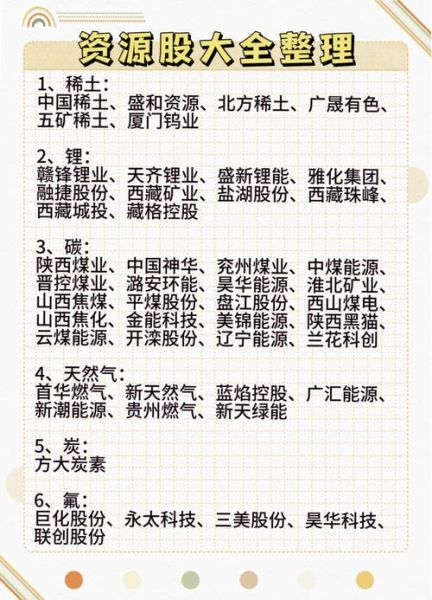 资源股大全整理
1、稀土：
中国稀土、盛和资源、北方稀土、广晟有色、
五矿稀土、厦门钨业
2、锂：
赣锋锂业、天齐锂业、盛新锂能、雅化集团、
融捷股份、西藏矿业、盐湖股份、西藏珠峰、
西藏城投、藏格控股
3、碳：
陕西煤业、中国神华、兖州煤业、中煤能源、
晋控煤业、潞安环能、昊华能源、淮北矿业、
山西焦煤、平煤股份、盘江股份、西山煤电、
山西焦化、金能科技、美锦能源、陕西黑猫、
云煤能源、开滦股份、辽宁能源、兰花科创
4、天然气：
首华燃气、新天然气、蓝焰控股、广汇能源、
新潮能源、贵州燃气、新天绿能
5、炭：
方大炭素
6、氟：
巨化股份、永太科技、三美股份、昊华科技、
联创股份